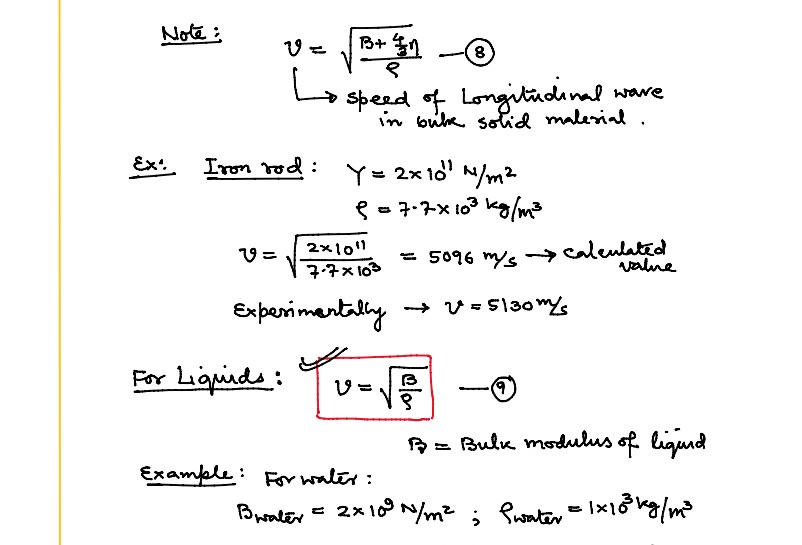 Note:
v = √((B + 4/3 η)/ρ) — (8)
↳ Speed of Longitudinal wave
in bulk solid material.
Ex: Iron rod: Y = 2×10¹¹ N/m²
ρ = 7.7×10³ kg/m³
v = √(2×10¹¹/7.7×10³) = 5096 m/s → calculated value
Experimentally → v = 5130 m/s
For Liquids: v = √(B/ρ) — (9)
B = Bulk modulus of liquid
Example: For water:
B water = 2×10⁹ N/m² ; ρ water = 1×10³ kg/m³